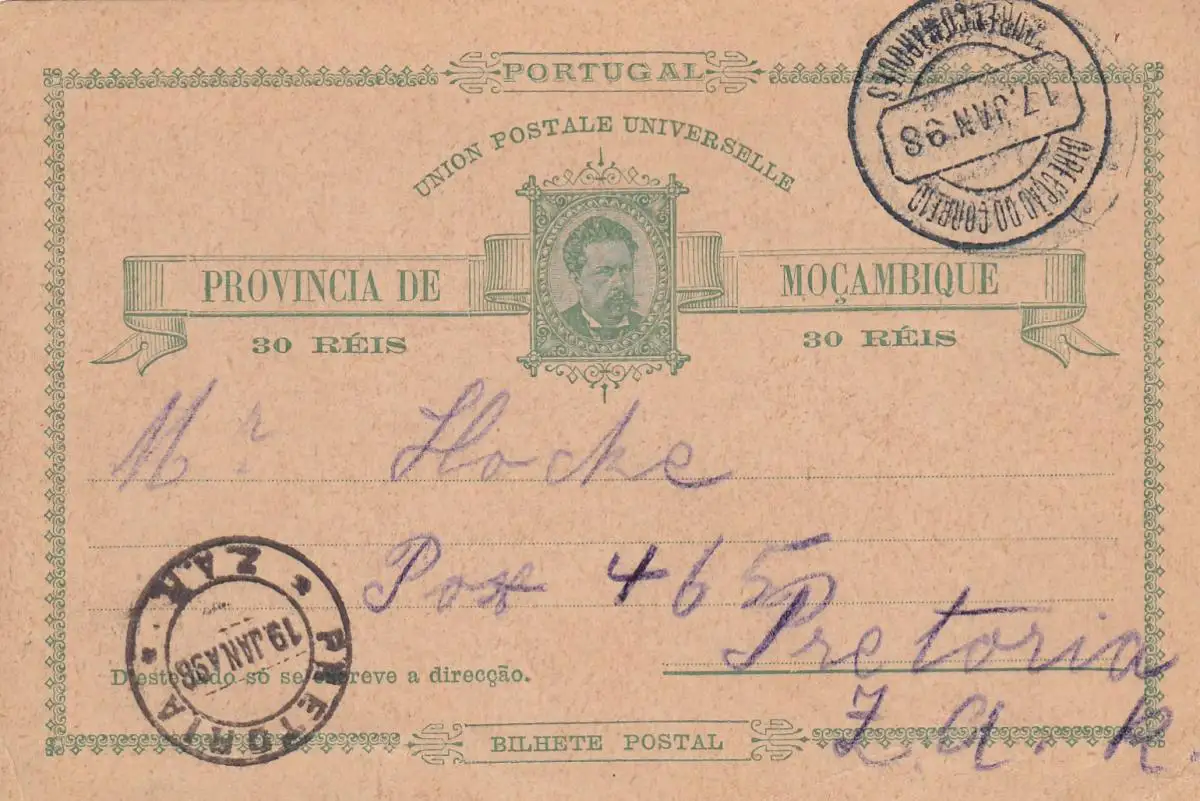 PORTUGAL
UNION POSTALE UNIVERSELLE
PROVINCIA DE MOÇAMBIQUE
30 RÉIS 30 RÉIS
LOURENÇO MARQUES
17.JAN.98
DIRECÇÃO DO CORREIO
Mr Hocke
Pox 465
Pretoria
Z.A.R.
D'este lado só se escreve a direcção.
BILHETE POSTAL
Z.A.R.
19 JAN 98
PRETORIA